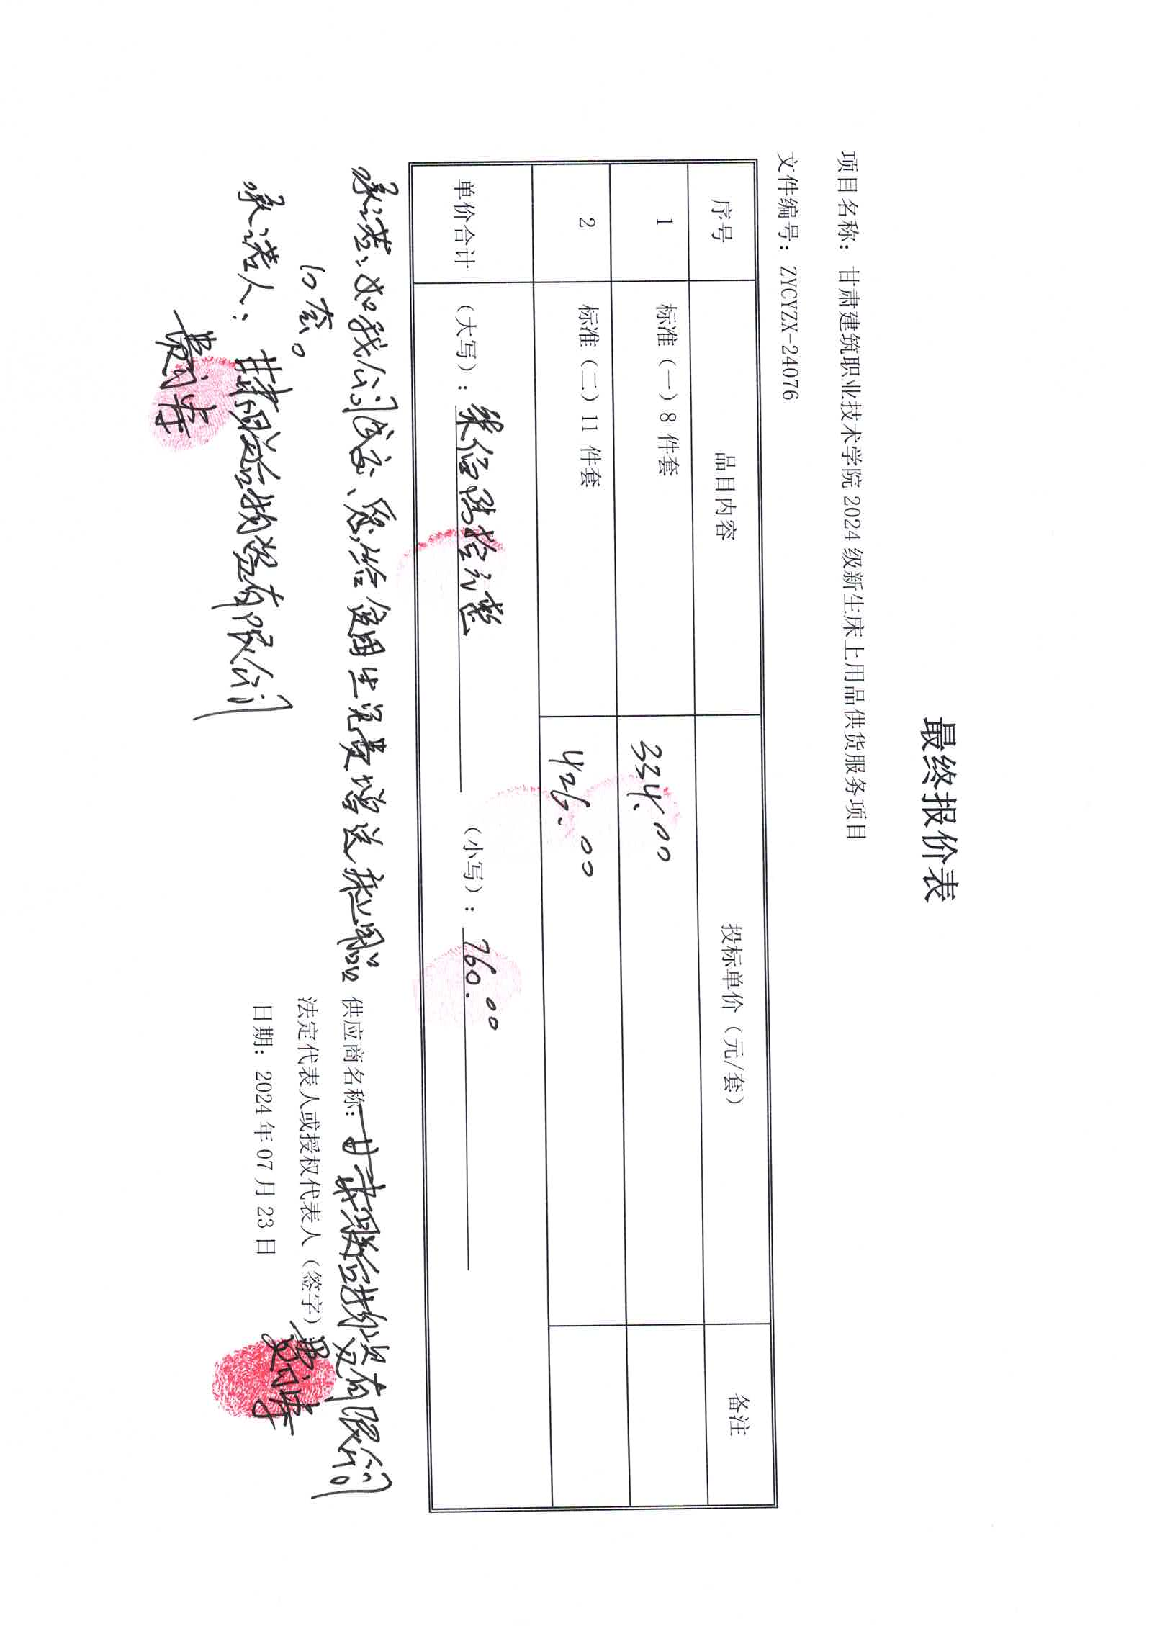 最终报价表
项目名称：甘肃建筑职业技术学院2024级新生床上用品供货服务项目
文件编号：ZYCYZX-24076
序号 品目内容 投标单价（元/套） 备注
1 标准（一）8件套 334.00
2 标准（二）11件套 426.00
单价合计 （大写）：柒佰陆拾元整 （小写）：760.00
承诺：如我公司成交、愿给贫困生免费赠送床上用品
10套。
供应商名称：甘肃联合物资有限公司
承诺人：甘肃联合物资有限公司
法定代表人或授权代表人（签字）
日期：2024年07月23日